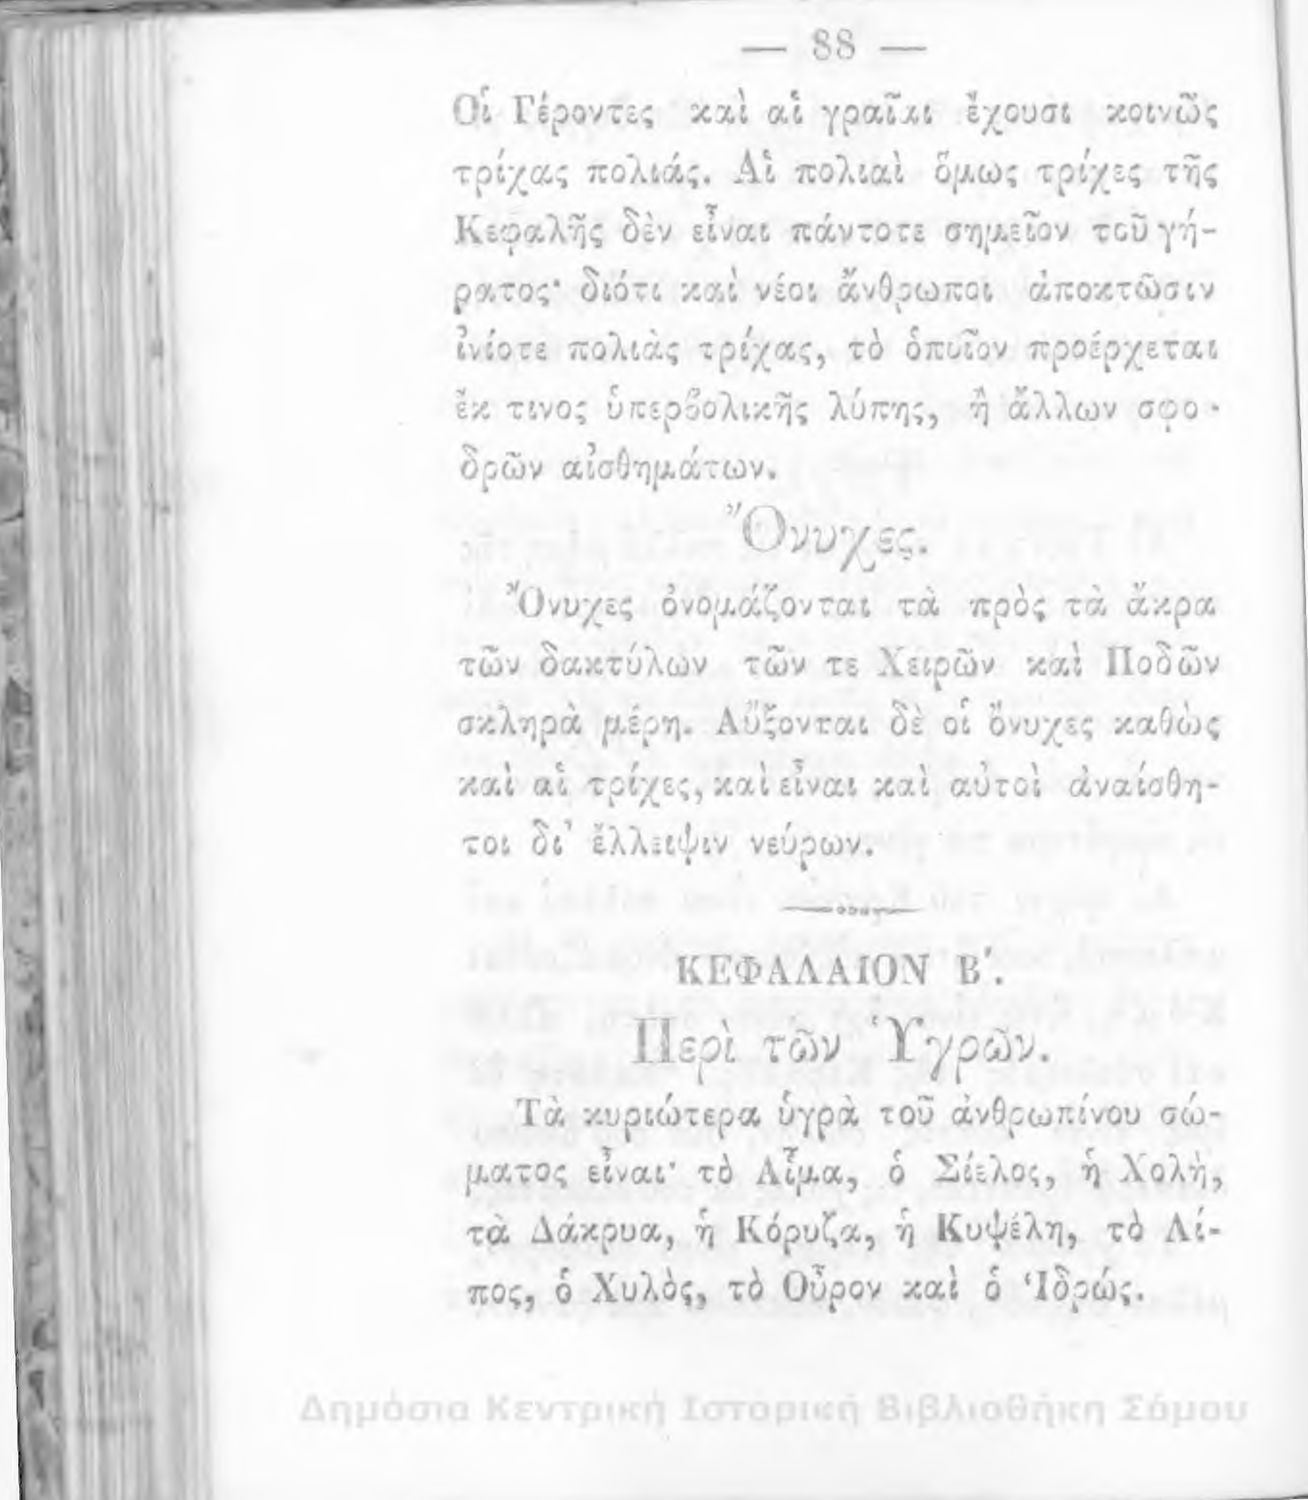 — 88 —
Οἱ Γέροντες καὶ αἱ γραῖαι ἔχουσι κοινῶς
τρίχας πολιάς. Αἱ πολιαὶ ὅμως τρίχες τῆς
Κεφαλῆς δὲν εἶναι πάντοτε σημεῖον τοῦ γή-
ρατος· διότι καὶ νέοι ἄνθρωποι ἀποκτῶσιν
ἐνίοτε πολιὰς τρίχας, τὸ ὁποῖον προέρχεται
ἔκ τινος ὑπερβολικῆς λύπης, ἢ ἄλλων σφο-
δρῶν αἰσθημάτων.
Ὄνυχες.
Ὄνυχες ὀνομάζονται τὰ πρὸς τὰ ἄκρα
τῶν δακτύλων τῶν τε Χειρῶν καὶ Ποδῶν
σκληρὰ μέρη. Αὔξονται δὲ οἱ ὄνυχες καθὼς
καὶ αἱ τρίχες, καὶ εἶναι καὶ αὐτοὶ ἀναίσθη-
τοι δι’ ἔλλειψιν νεύρων.
ΚΕΦΑΛΑΙΟΝ Β΄.
Περὶ τῶν Ὑγρῶν.
Τὰ κυριώτερα ὑγρὰ τοῦ ἀνθρωπίνου σώ-
ματος εἶναι· τὸ Αἷμα, ὁ Σίελος, ἡ Χολὴ,
τὰ Δάκρυα, ἡ Κόρυζα, ἡ Κυψέλη, τὸ Λί-
πος, ὁ Χυλὸς, τὸ Οὖρον καὶ ὁ Ἱδρώς.
Δημόσια Κεντρική Ιστορική Βιβλιοθήκη Σάμου